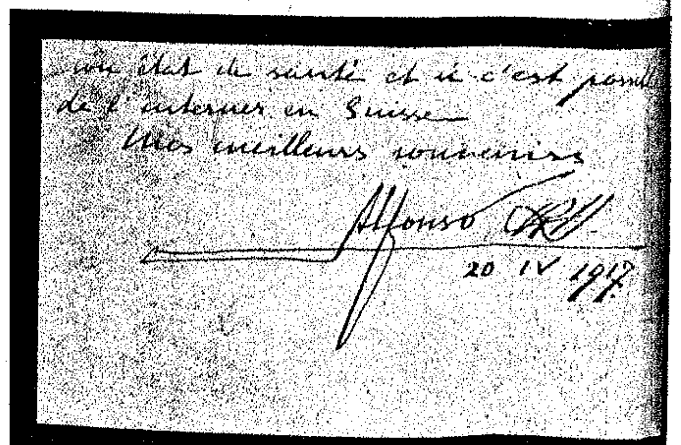 son état de santé et si c'est possible
de l'interner en Suisse
Mes meilleurs souvenirs
Alfonso
20 IV 1917.